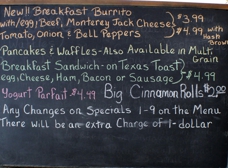 New!! Breakfast Burrito
with/egg, Beef, Monterey Jack Cheese, $3.99
Tomato, Onion & Bell Peppers $4.99 with Hash Brown
Pancakes & Waffles - Also Available in Multi Grain
Breakfast Sandwich - on Texas Toast
egg, Cheese, Ham, Bacon or Sausage $4.99
Yogurt Parfait $4.49 Big Cinnamon Rolls $2.00
Any Changes on Specials 1-9 on the Menu
There will be an extra Charge of 1-dollar